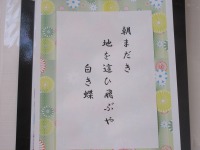 朝まだき
地を這ひ飛ぶや
白き蝶